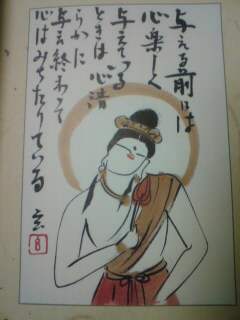 与える前には
心楽しく
与えている
ときは心清
らかに
与え終わって
心はみちたりている